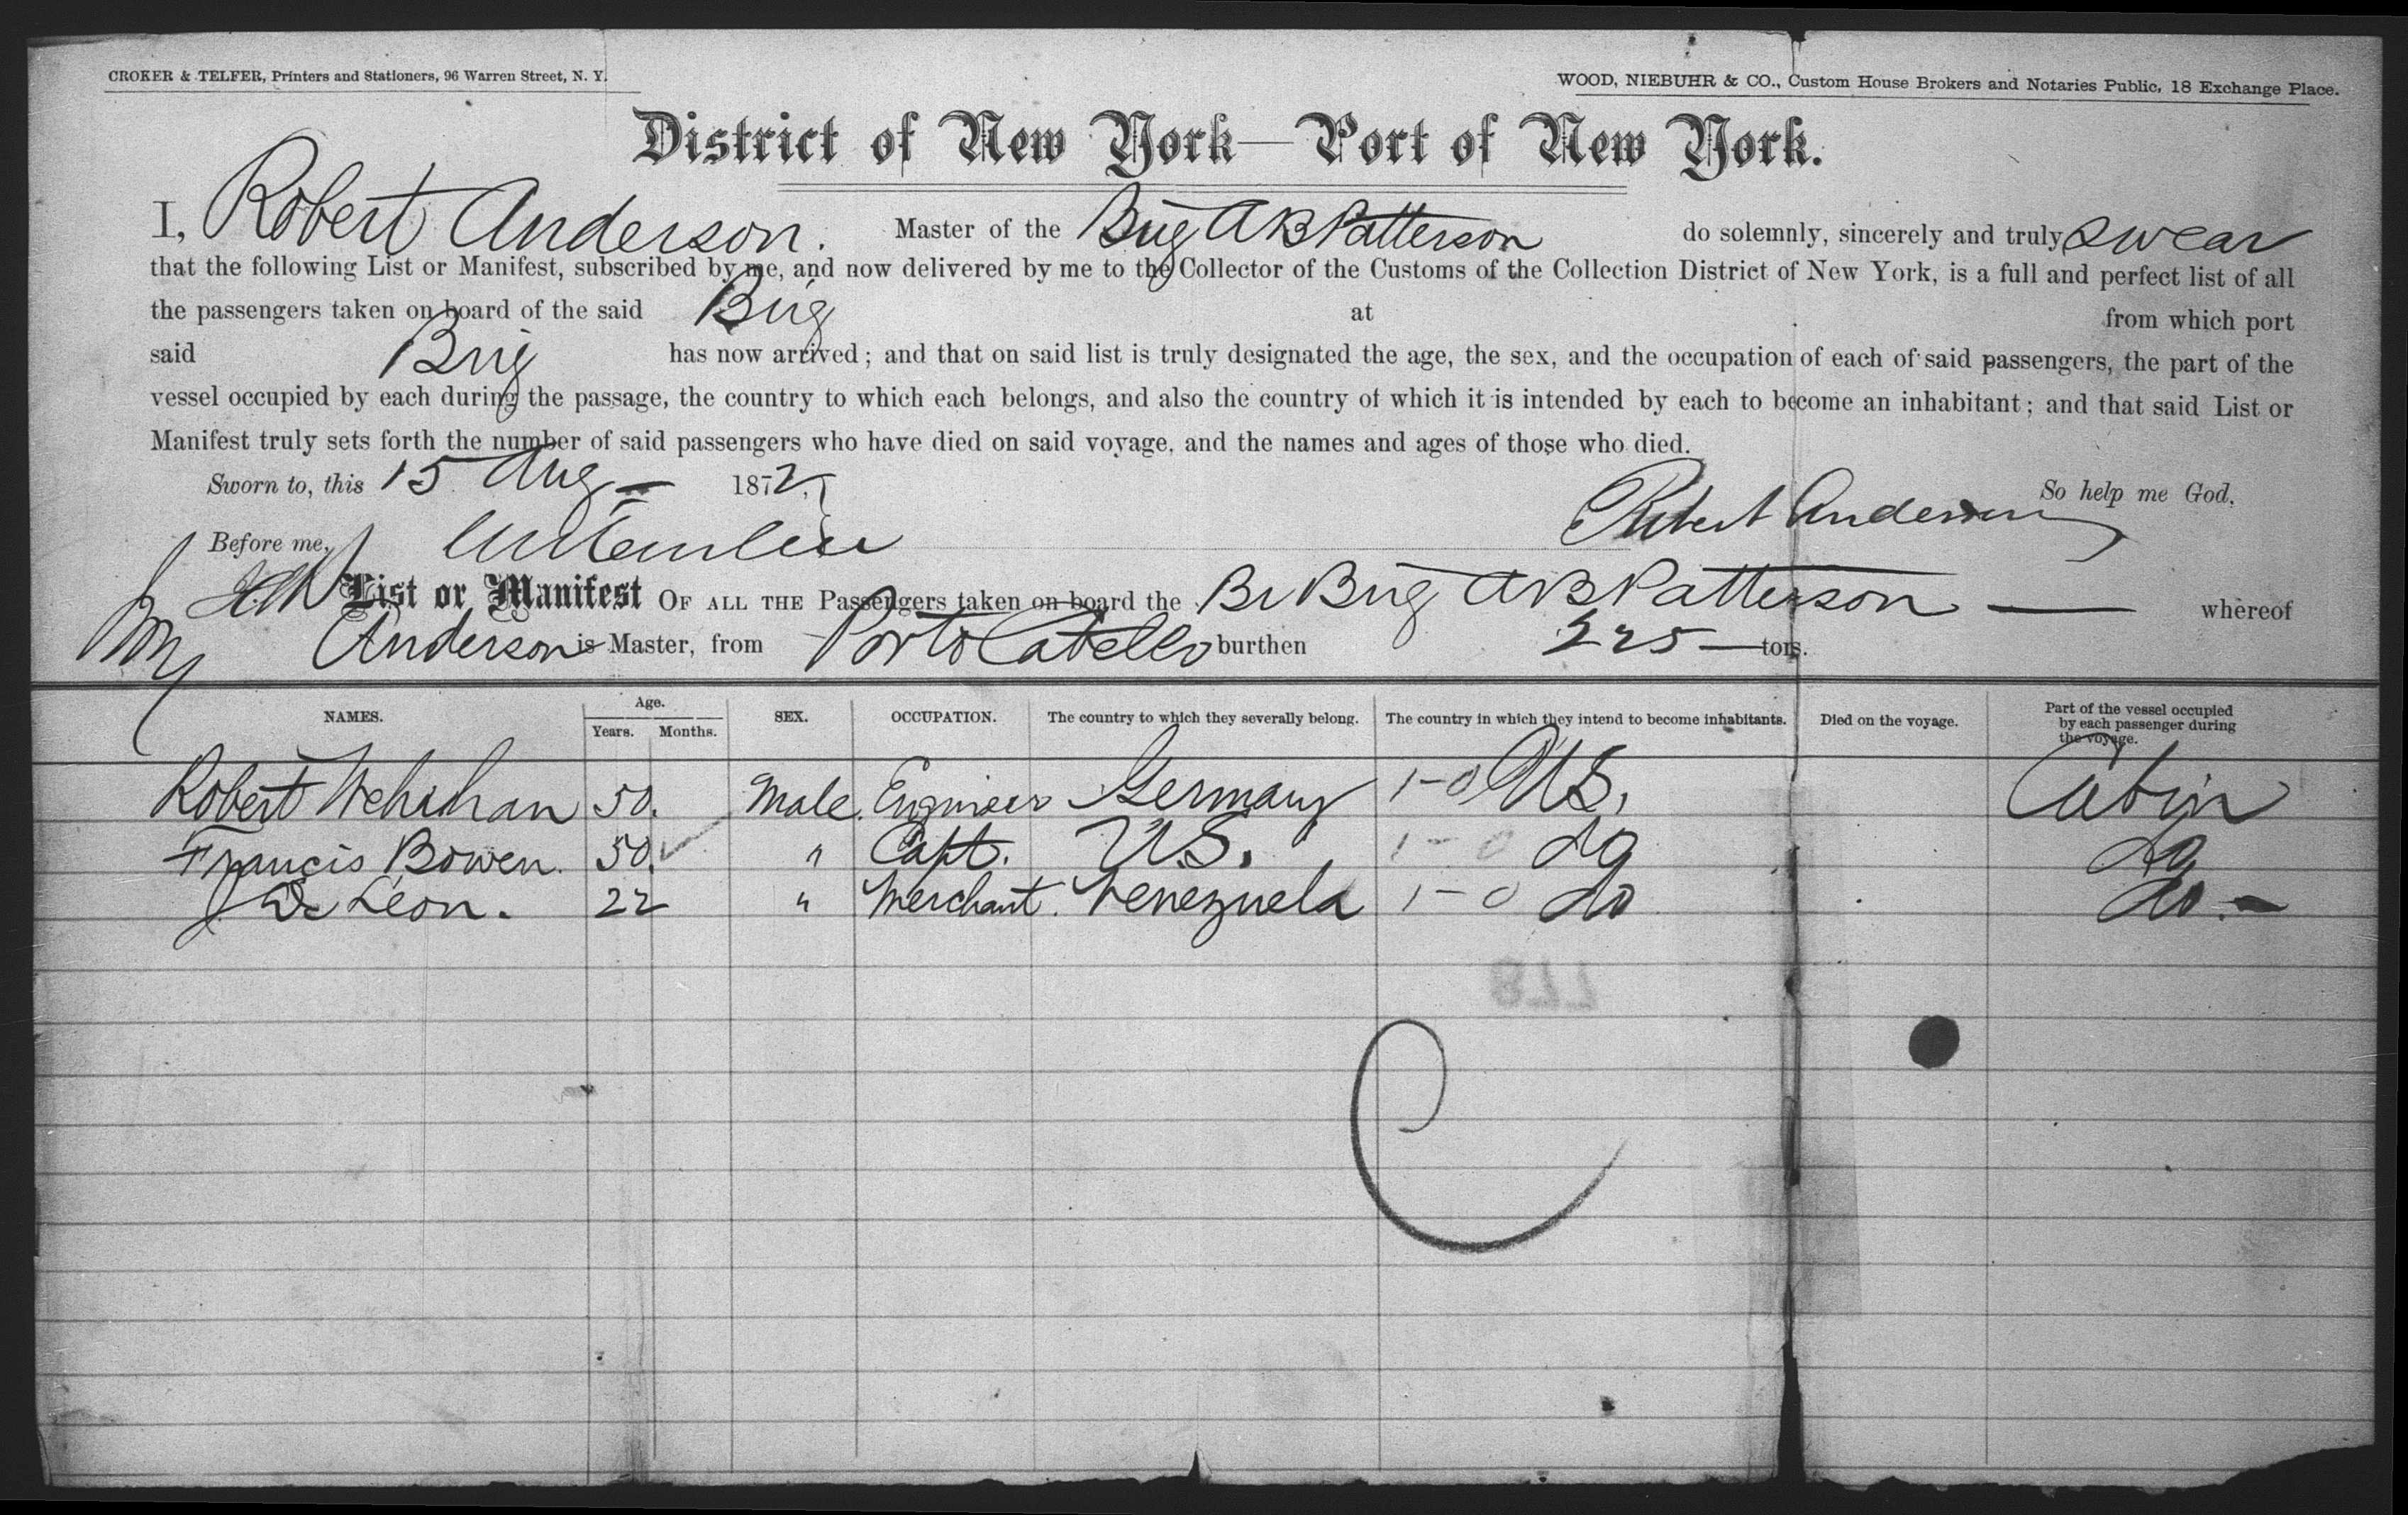 CROKER & TELFER, Printers and Stationers, 96 Warren Street, N. Y.
WOOD, NIEBUHR & CO., Custom House Brokers and Notaries Public, 18 Exchange Place.
District of New York—Port of New York.
I, Robert Anderson. Master of the Brig A B Patterson do solemnly, sincerely and truly swear
that the following List or Manifest, subscribed by me, and now delivered by me to the Collector of the Customs of the Collection District of New York, is a full and perfect list of all
the passengers taken on board of the said Brig at from which port
said Brig has now arrived; and that on said list is truly designated the age, the sex, and the occupation of each of said passengers, the part of the
vessel occupied by each during the passage, the country to which each belongs, and also the country of which it is intended by each to become an inhabitant; and that said List or
Manifest truly sets forth the number of said passengers who have died on said voyage, and the names and ages of those who died.
Sworn to, this 15 Aug – 1872, So help me God.
Before me, Robert Anderson
List or Manifest OF ALL THE Passengers taken on board the Br Brig A B Patterson — whereof
Anderson is Master, from Porto Cabello burthen 225 — tons.
NAMES. Age. Years. Months. SEX. OCCUPATION. The country to which they severally belong. The country in which they intend to become inhabitants. Died on the voyage. Part of the vessel occupied by each passenger during the voyage.
Robert 50. Male. Engineer Germany 1-0 U.S. Cabin
Francis Bowen. 50. " Capt. U.S. 1-0 do do
J De Leon. 22 " Merchant. Venezuela 1-0 do do. -